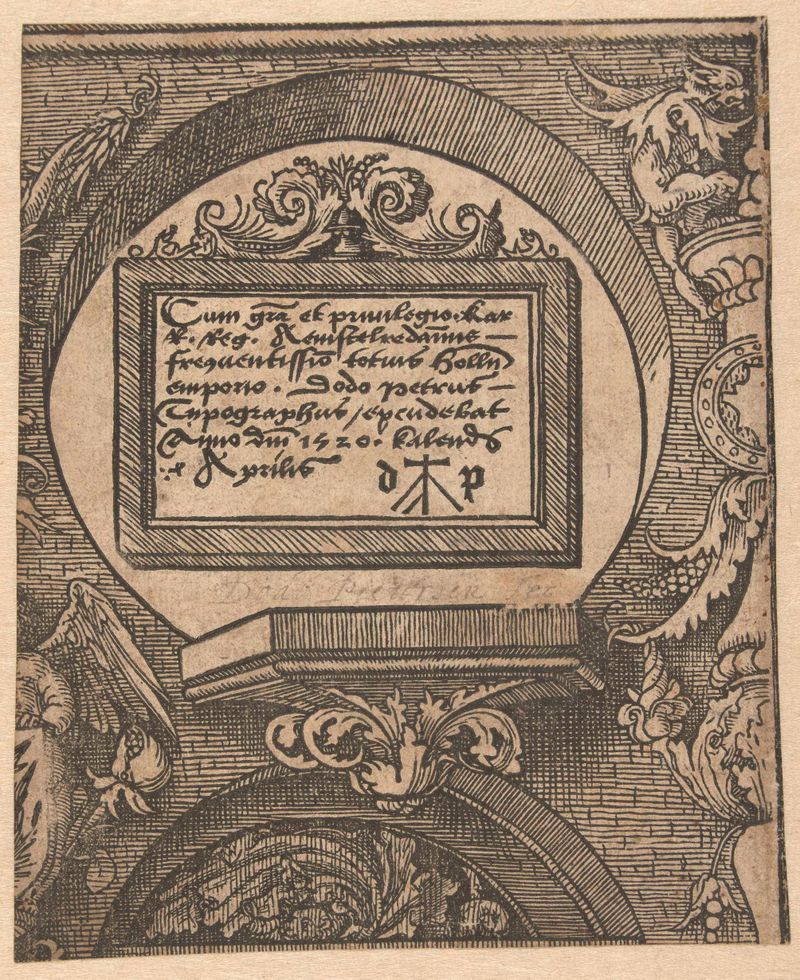 Cum grã et priuilegio. Kar
R. Reg. Aemstelredamme
frequentissiõ totius Holln̄
emporio. Dodo petrus
Typographus / excudebat
Anno dñi 1520. kalends
Aprilis
d p
Dodo pietersen fec